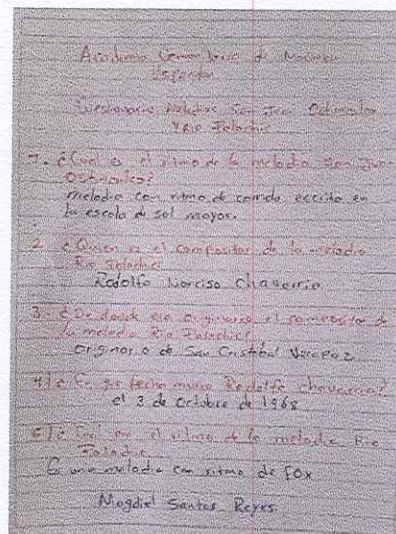 Academia Comunitaria de Marimba
Cuestionario Melodías San Juan Ostuncalco
Y Rio Polochic
1. ¿Cual es el ritmo de la melodia San Juan
Ostuncalco?
melodia con ritmo de corrido escrito en
la escala de sol mayor.
2 ¿Quien es el compositor de la melodia
Rio Polochic
Rodolfo Narciso Chavarria
3. ¿De donde era originario el compositor de
la melodia Rio Polochic?
originario de San Cristóbal Verapaz
4) ¿En que fecha murio Rodolfo chavarria?
el 3 de Octubre de 1968
5) ¿Cual es el ritmo de la melodia Rio
Polochic
Es una melodia con ritmo de fox
Magdiel Santos Reyes